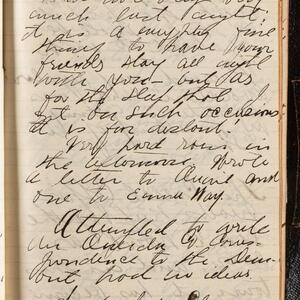 much last night.
it is a mighty fine
thing to have your
friends stay all night
with you - but as
for the sleep that I
get on such occasions
it is far distant!
Very hard rain in
the afternoon. Wrote
a letter to and
one to Emma Way.
Attempted to write
an Oneida
pondence to the
but had no ideas